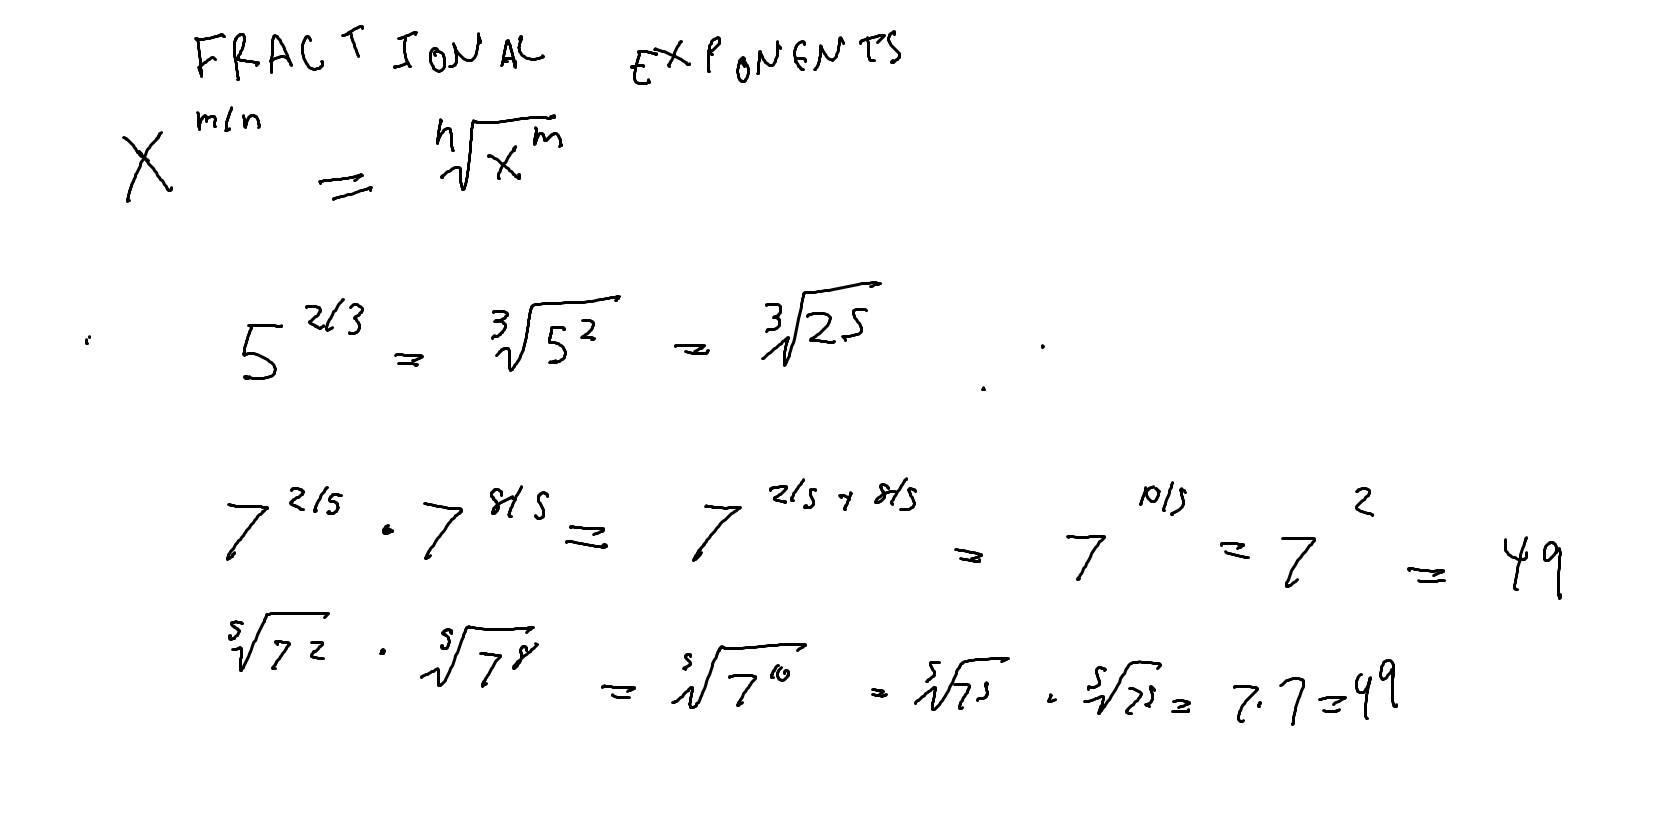 FRACTIONAL EXPONENTS
x^{m/n} = \sqrt[n]{x^m}
5^{2/3} = \sqrt[3]{5^2} = \sqrt[3]{25}
7^{2/5} · 7^{8/5} = 7^{2/5 + 8/5} = 7^{10/5} = 7^2 = 49
\sqrt[5]{7^2} · \sqrt[5]{7^8} = \sqrt[5]{7^{10}} = \sqrt[5]{7^5} · \sqrt[5]{7^5} = 7 · 7 = 49